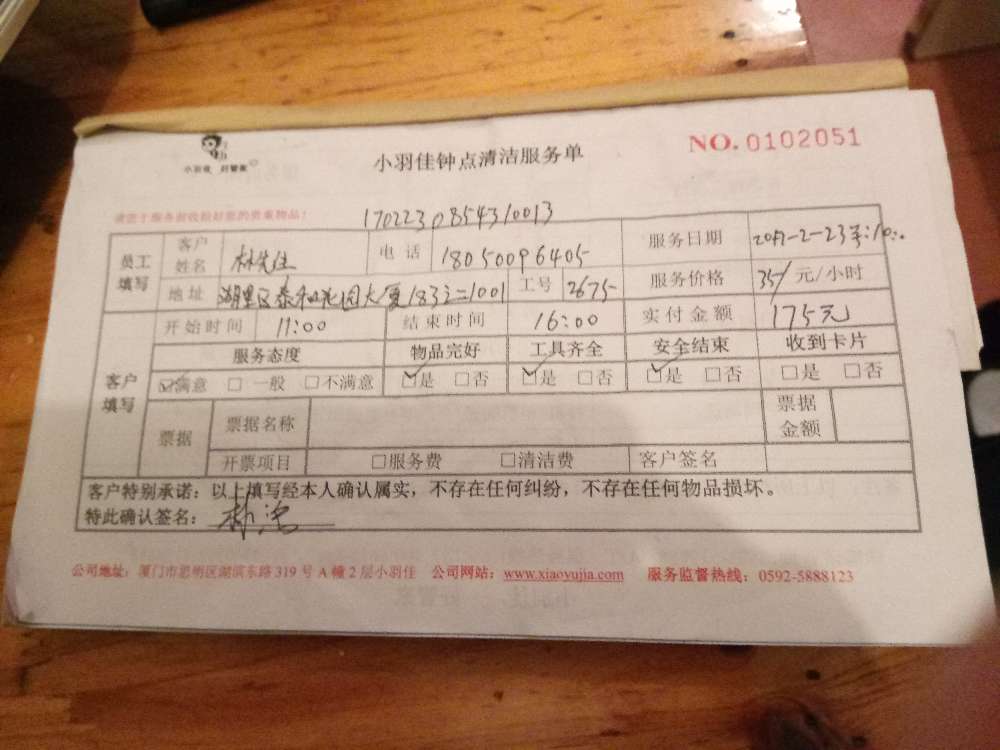 小羽佳 好管家
小羽佳钟点清洁服务单
NO.0102051
请您于服务前收拾好您的贵重物品!
1702230854310013
员工填写 客户姓名 林先生 电话 18050096405 服务日期 2017-2-23
地址 湖里区泰和花园大厦183之二1001 工号 2675 服务价格 35/ 元/小时
开始时间 11:00 结束时间 16:00 实付金额 175元
客户填写 服务态度 物品完好 工具齐全 安全结束 收到卡片
☑满意 □一般 □不满意 ☑是 □否 ☑是 □否 ☑是 □否 □是 □否
票据 票据名称 票据金额
开票项目 □服务费 □清洁费 客户签名
客户特别承诺:以上填写经本人确认属实,不存在任何纠纷,不存在任何物品损坏。
特此确认签名:
公司地址:厦门市思明区湖滨东路319号A幢2层小羽佳 公司网站:www.xiaoyujia.com 服务监督热线:0592-5888123